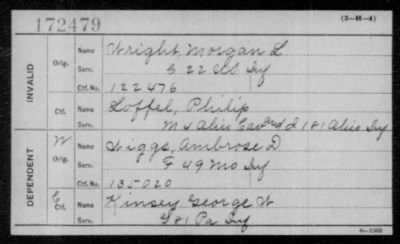 172479
(3-H-4)
INVALID
Orig.
Name Wright, Morgan L
Serv. G 22 Inf
Ctf. No. 122476
Ctf.
Name Loffel, Philip
Serv. M 4 Ohio Cav and I 181 Ohio Inf
DEPENDENT
W
Orig.
Name Niggs, Ambrose D
Serv. F 49 Mo Inf
Ctf. No. 135020
C
Ctf.
Name Kinsey George W
Serv. 81 Pa Inf